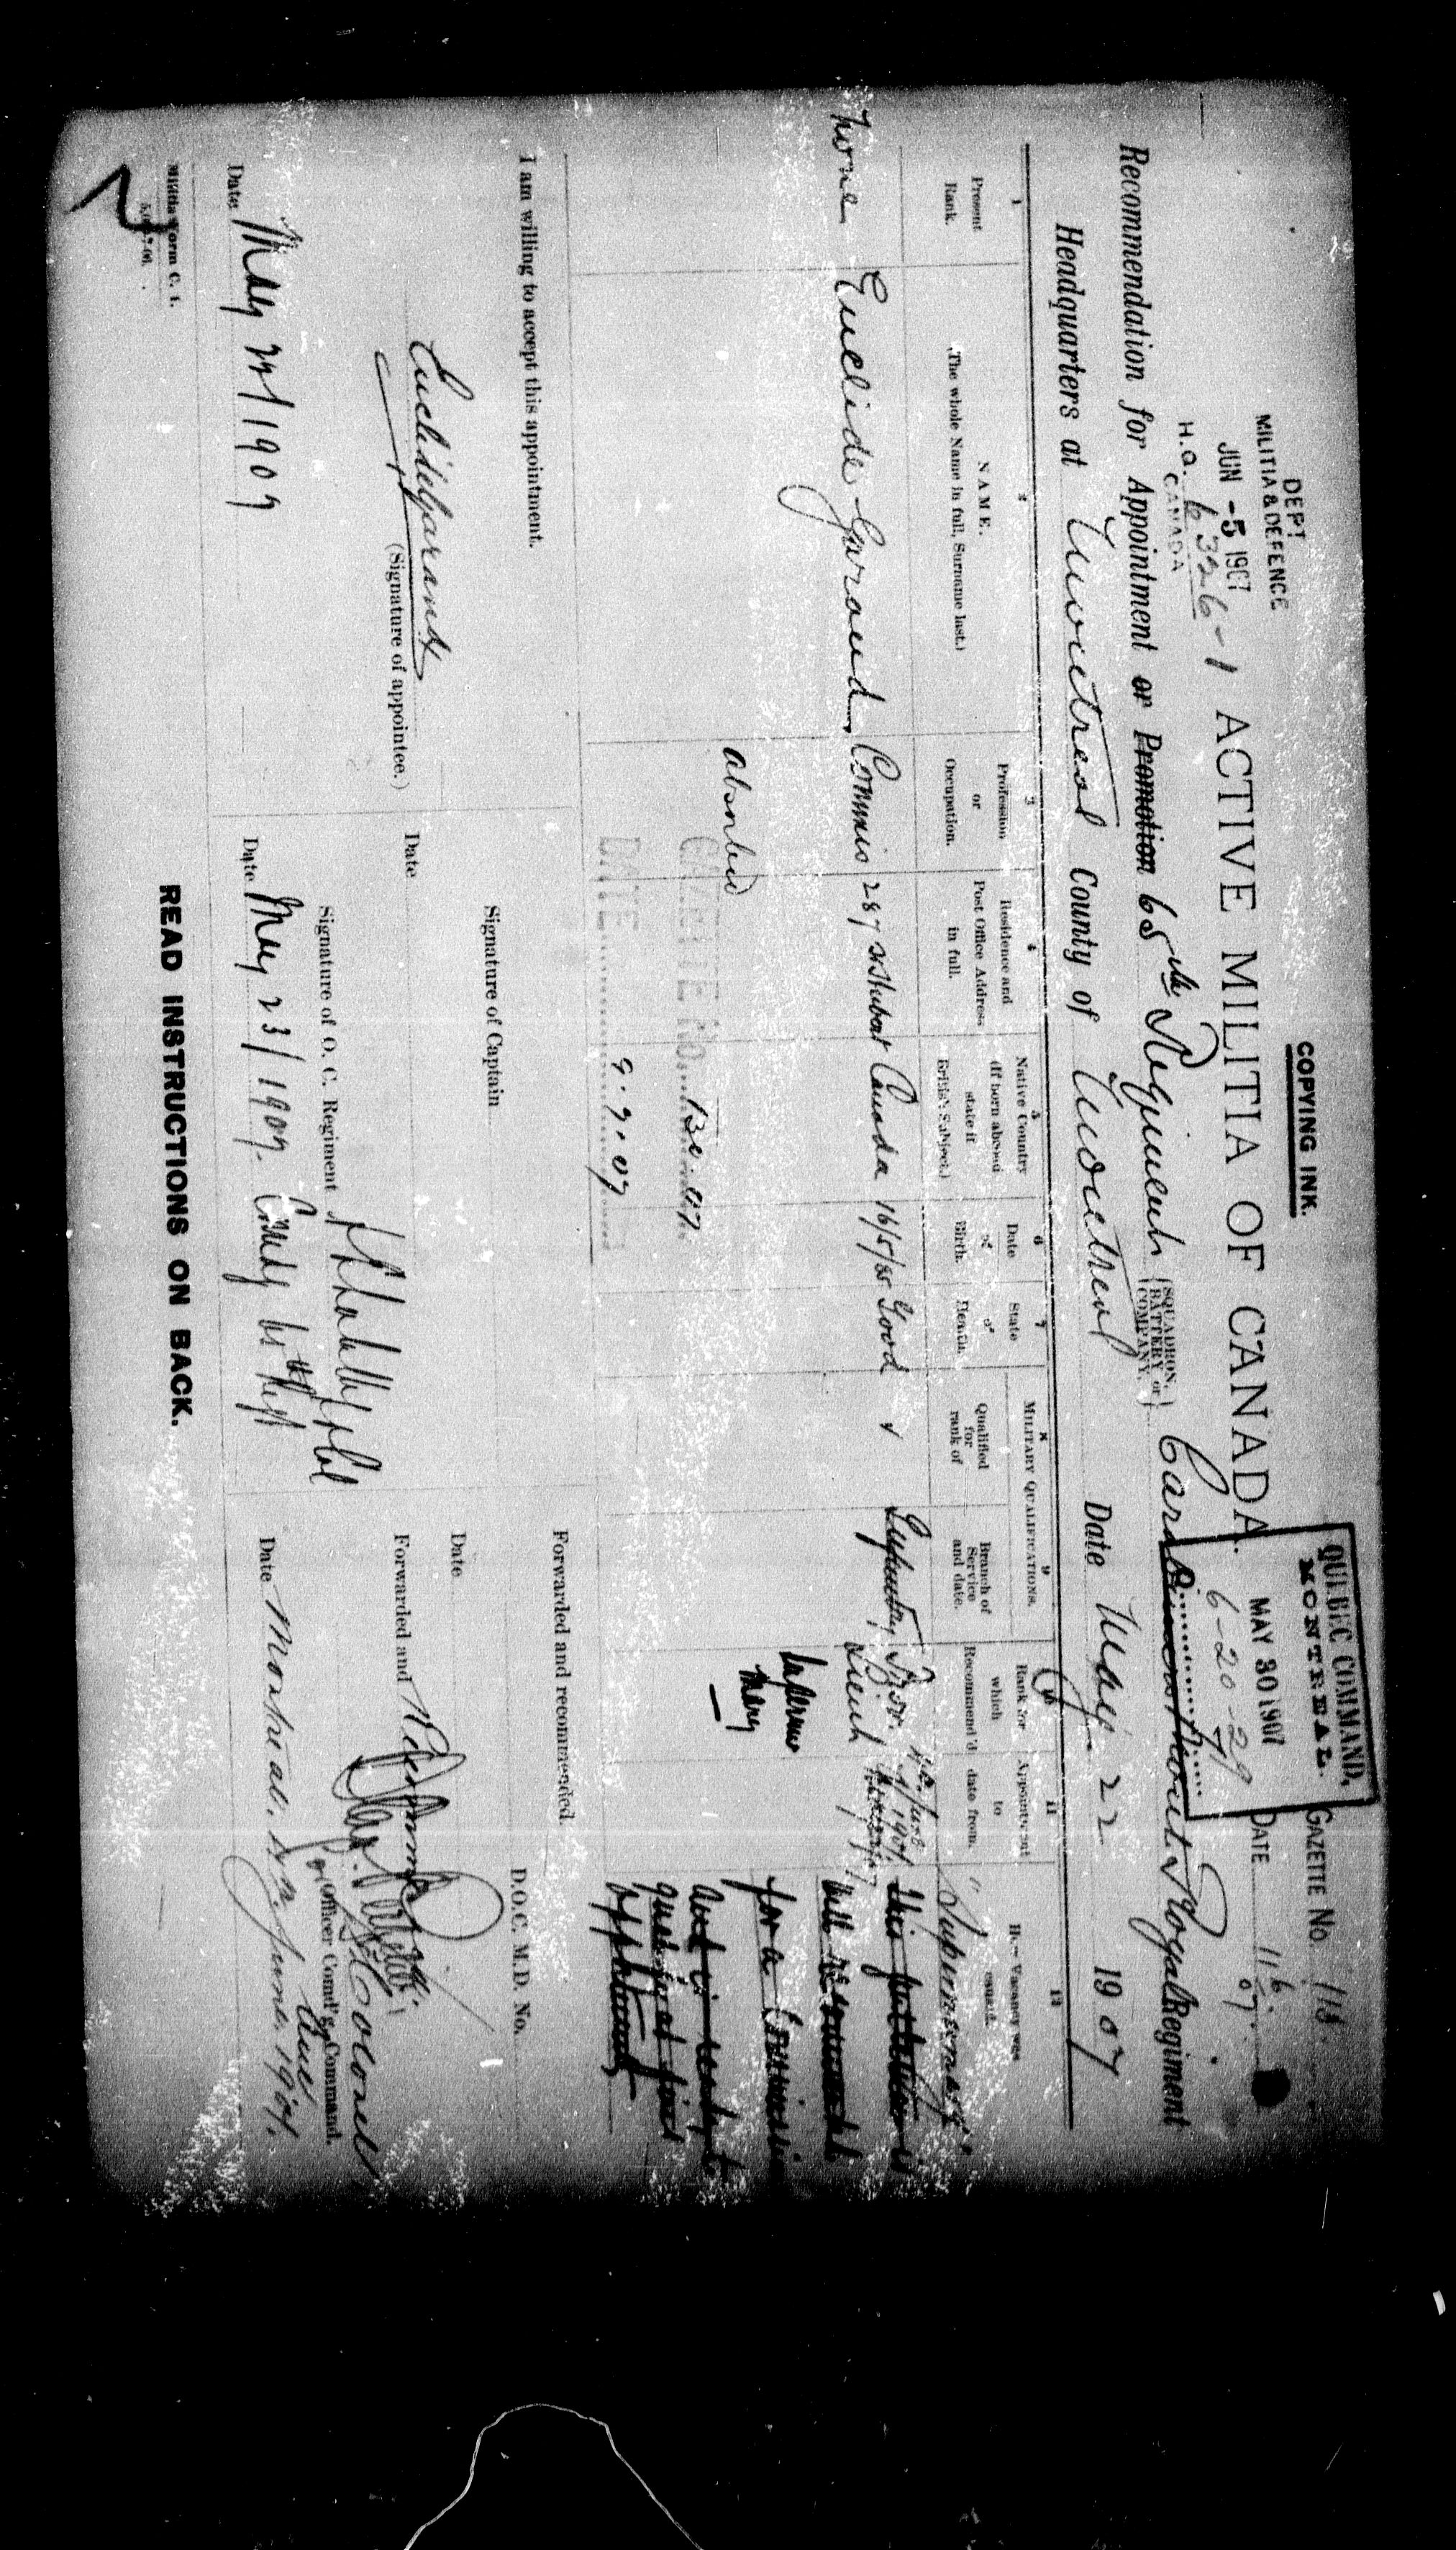 COPYING INK.
QUEBEC COMMAND,
MONTREAL.
MAY 30 1907
6-20-29
GAZETTE No. 118.
DATE 11.6.07.
DEPT
MILITIA & DEFENCE
JUN -5 1907
H.Q. 6326-1
CANADA
ACTIVE MILITIA OF CANADA.
Recommendation for Appointment or Promotion 65th Regiment {SQUADRON, BATTERY or COMPANY.} Carabiniers Mount Royal Regiment
Headquarters at Montreal County of Montreal Date May 22 1907
1 Present Rank.
2 NAME. (The whole Name in full, Surname last.)
3 Profession or Occupation.
4 Residence and Post Office Address in full.
5 Native Country (If born abroad state if British Subject.)
6 Date of Birth.
7 State of Health.
MILITARY QUALIFICATIONS.
8 Qualified for rank of
9 Branch of Service and date.
10 Rank for which Recommend'd
11 Appointment to date from.
12 How Vacancy was caused.
none Euclide Garaud, Commis 287 St Hubert Canada 16/5/85 Good
Infantry Prov. Lieut
Supernumerary
this gentleman is
well recommended
for a Commission
and is ready to
qualify at first
opportunity
absorbed
GAZETTE No. 130.07.
DATE 9.7.07
I am willing to accept this appointment.
Euclide Garaud
(Signature of appointee.)
Date May 22/1907
Signature of Captain
Date
Signature of O. C. Regiment
Date May 23/1907. Comdg 65th Regt
Forwarded and recommended.
D.O.C. M.D. No.
Date
Forwarded and
Colonel
Officer Comd'g. Command.
Date Montreal. June. 1907.
Militia Form C. 1.
READ INSTRUCTIONS ON BACK.